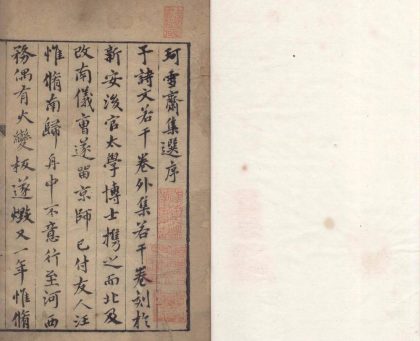 珂雪齋集選序
予詩文若干卷外集若干卷刻於
新安後官太學博士攜之而北及
改南儀曹遂留京師已付友人汪
惟脩南歸舟中不意行至河西
務偶有火變板遂燬又一年惟脩